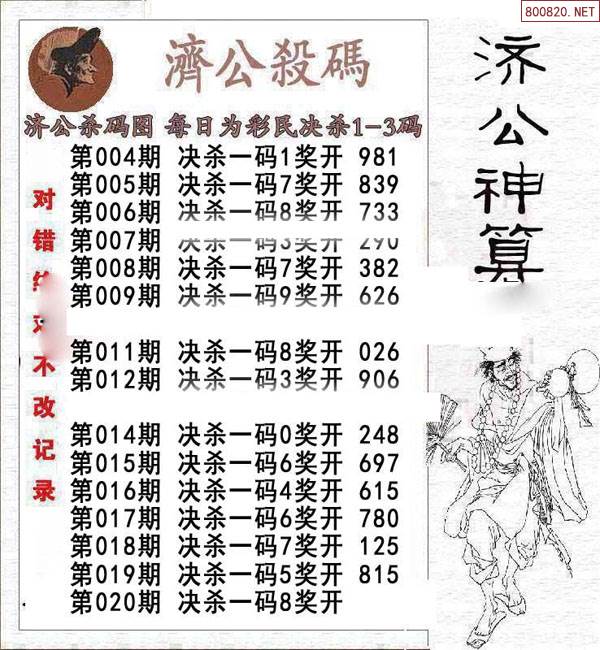 800820.NET
濟公殺碼
济公杀码图 每日为彩民决杀1-3码
第004期 决杀一码1奖开 981
第005期 决杀一码7奖开 839
第006期 决杀一码8奖开 733
第007期 决杀一码3奖开 290
第008期 决杀一码7奖开 382
第009期 决杀一码9奖开 626
第011期 决杀一码8奖开 026
第012期 决杀一码3奖开 906
第014期 决杀一码0奖开 248
第015期 决杀一码6奖开 697
第016期 决杀一码4奖开 615
第017期 决杀一码6奖开 780
第018期 决杀一码7奖开 125
第019期 决杀一码5奖开 815
第020期 决杀一码8奖开
对错
不改记录
济公神算